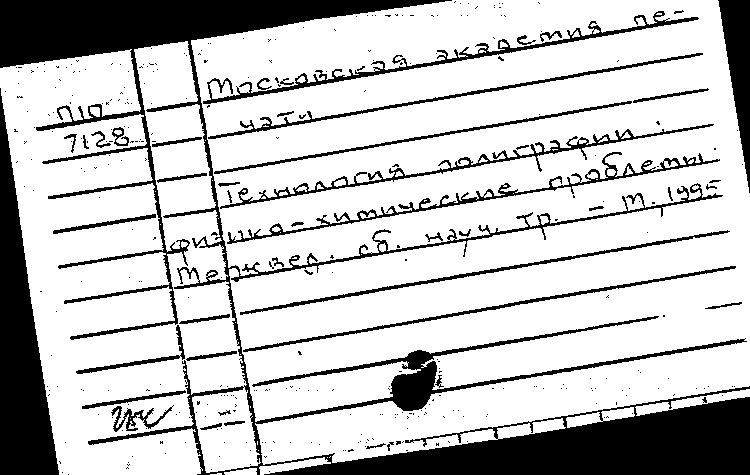 Московская академия пе-
П10
7128 чати
Технология полиграфии:
физико-химические проблемы:
Межвед. сб. науч. тр. - М., 1995